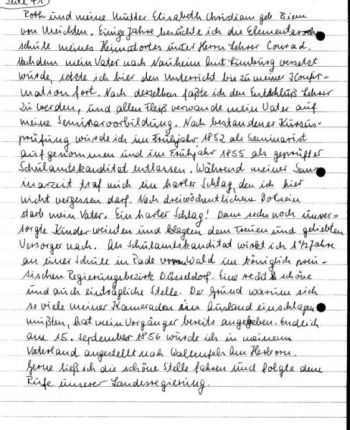 Seite 41
Roth und meine Mutter Elisabeth Christian geb Biem
von Meichsen. Einige Jahre besuchte ich die Elementar
schule meines Heimatortes unter Herrn Lehrer Conrad.
Nachdem mein Vater nach Nauheim Amt Limburg versetzt
wurde, setzte ich hier den Unterricht bis zu meiner Konfir-
mation fort. Nach derselben faßte ich den Entschluß Lehrer
zu werden, und allen Fleiß verwande mein Vater auf
meine Seminarvorbildung. Nach bestandener Kursus-
prüfung würde ich im Frühjahr 1852 als Seminarist
aufgenommen und im Frühjahr 1855 als geprüfter
Schulamtskanditat entlassen. Während meiner Sem
inarzeit traf mich ein harter Schlag, den ich hier
nicht vergessen darf. Nach dreiwöchentlichem
starb mein Vater. Ein harter Schlag! Denn sechs noch unver-
sorgte Kinder weinten und klagten dem Treuen und geliebten
Versorger nach. Als Schulamtskanditat wirkt ich 1½ Jahre
an einer Schule in Rade vorm Wald im königlich preu-
sischen Regierungsbezirk Düsseldorf. Eine recht schöne
und auch einträgliche Stelle. Der Grund warum sich
so viele meiner Kameraden ins Ausland einschlagen
mußten, hat mein Vorgänger bereits angegeben. Endlich
am 15. September 1856 würde ich in meinem
Vaterland angestellt nach Wallenfels Amt Herborn.
Gerne ließ ich die schöne Stelle fahren und folgte dem
Rufe unserer Landesregierung.